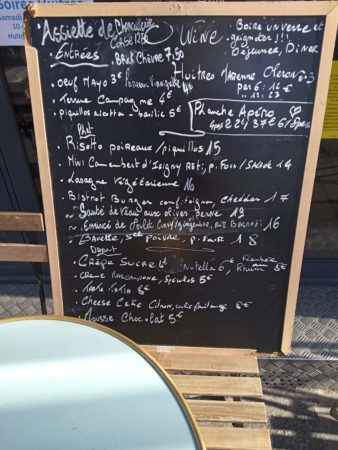 Soirée Huîtres
Samedi
Assiette de Charcuterie
Corse
WINE
Boire un verre et
grignoter !!!
Déjeuner, Dîner
Entrées
Brick Chèvre 7,50
. oeuf Mayo 3€ Poireau Vinaigrette
Huitres Marenne Oléron n°3
par 6 : 12€
Terrine Campagne 6€
. piquillos ricotta - basilic 5€
Planche Apéro
Plat
. Risotto poireaux / piquillos 15
. Mini Camembert d'Isigny Roti, p. Four / Salade 14
. Lasagne végétarienne 16
. Bistrot Burger confit oignon, cheddar 17
~ Sauté de veau aux olives, penne 19
. Emincé de Poulet Curry/gingembre, riz Basmati 16
. Bavette, sce poivre, p. Fair 18
Dessert
. Crêpe Sucre 4€ Nutella 6€, Flambée au Rhum 8€
. Crème Mascarpone, Spéculos 5€
. Tarte Tatin 6€
. Cheese Cake Citron, coulis fruit rouge 6€
. Mousse Chocolat 5€